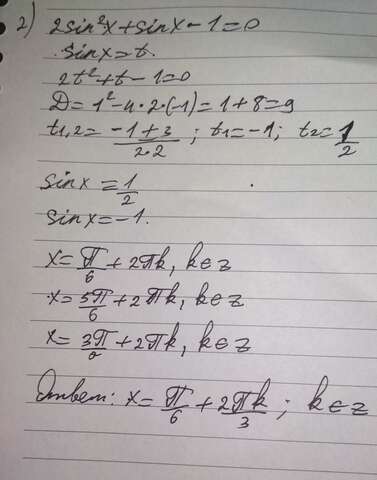 2) 2sin²x+sinx-1=0
sinx=t.
2t²+t-1=0
D=1²-4·2·(-1)=1+8=9
t₁,₂=(-1+3)/(2·2); t₁=-1; t₂=1/2
sinx=1/2
sinx=-1.
x=π/6+2πk, k∈z
x=5π/6+2πk, k∈z
x=3π/2+2πk, k∈z
Ответ: x=π/6+2πk/3; k∈z